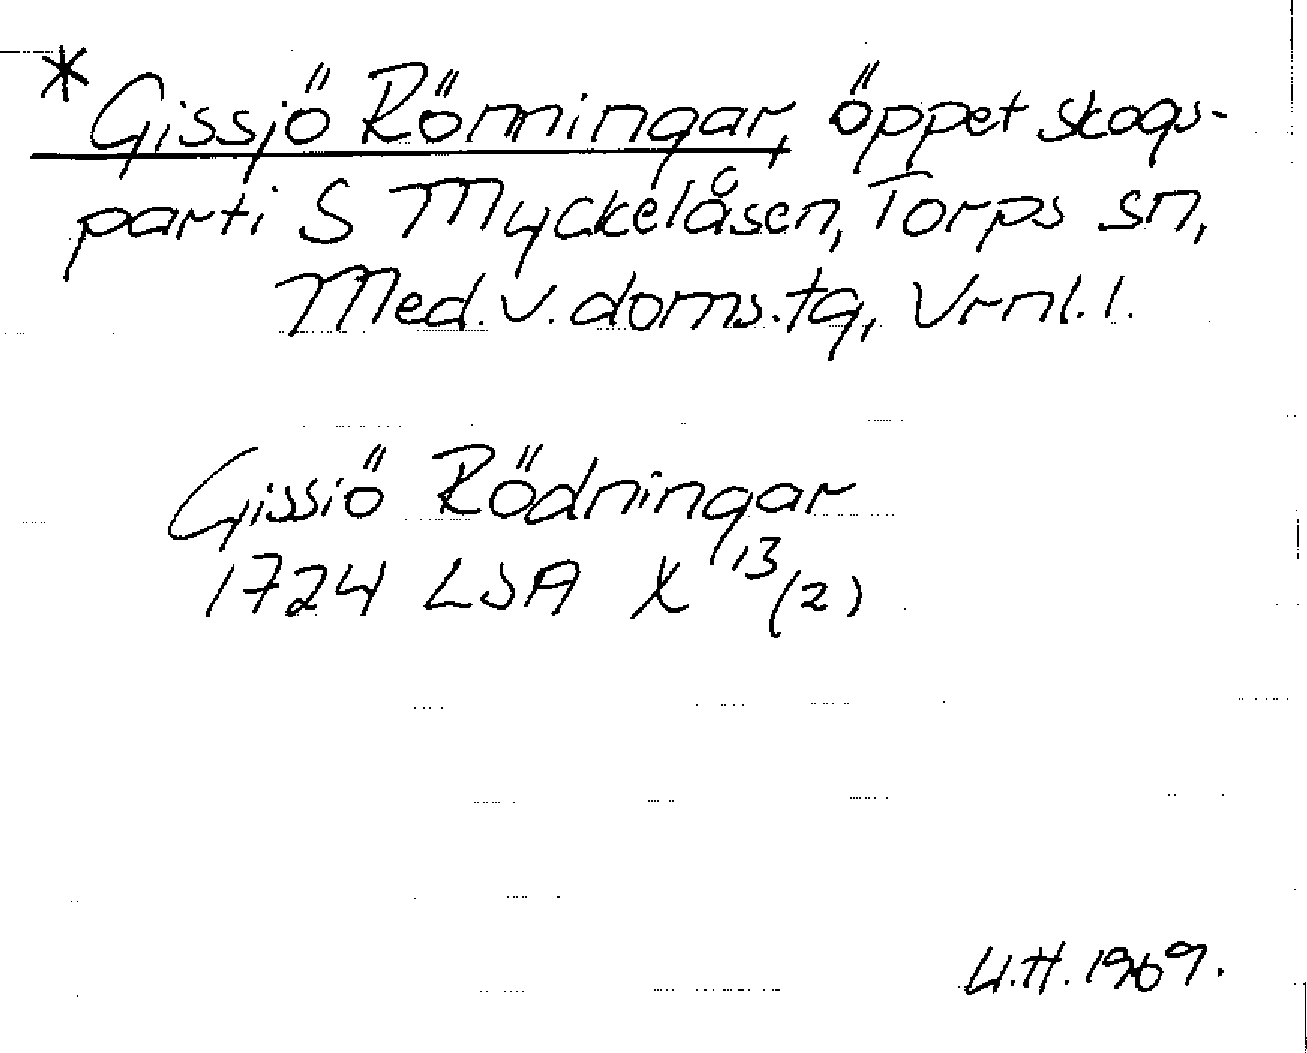 * Gissjö Rönningar, öppet skogs-
parti S Myckelåsen, Torps sn,
Med. v. doms. tg, Vrnl. l.
Gissiö Rödningar
1724 LSA X 13/(2)
U.H. 1969.